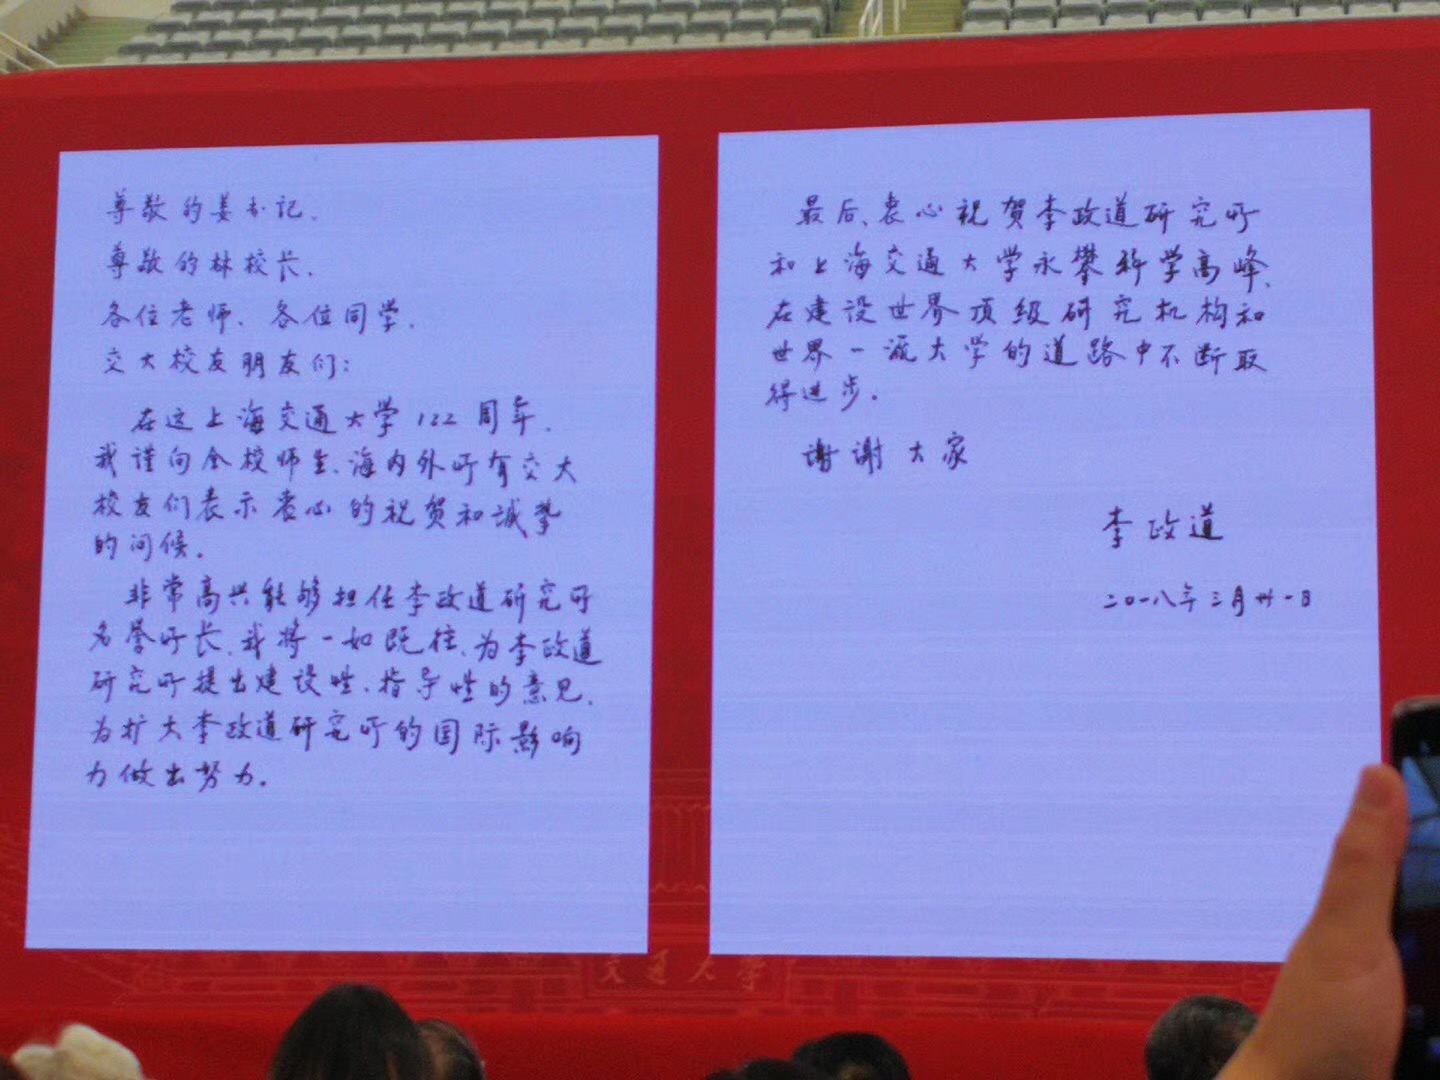 尊敬的姜书记、
尊敬的林校长、
各位老师、各位同学、
交大校友朋友们：
在这上海交通大学122周年、
我谨向全校师生、海内外所有交大
校友们表示衷心的祝贺和诚挚
的问候。
非常高兴能够担任李政道研究所
名誉所长、我将一如既往、为李政道
研究所提出建设性、指导性的意见、
为扩大李政道研究所的国际影响
力做出努力。
最后、衷心祝贺李政道研究所
和上海交通大学永攀科学高峰、
在建设世界顶级研究机构和
世界一流大学的道路中不断取
得进步。
谢谢大家
李政道
二〇一八年三月卅一日
交通大学